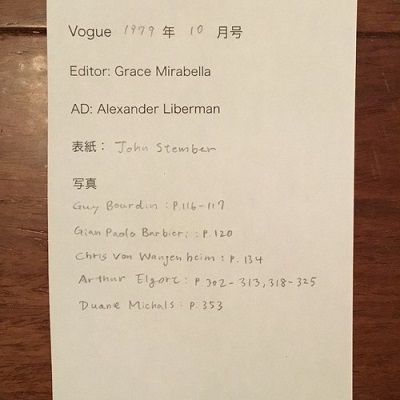 Vogue 1979 年 10 月号
Editor: Grace Mirabella
AD: Alexander Liberman
表紙： John Stember
写真
Guy Bourdin : P.116-117
Gian Paolo Barbieri : P.120
Chris Von Wangenheim : P. 134
Arthur Elgort : P. 302-313, 318-325
Duane Michals : P. 353